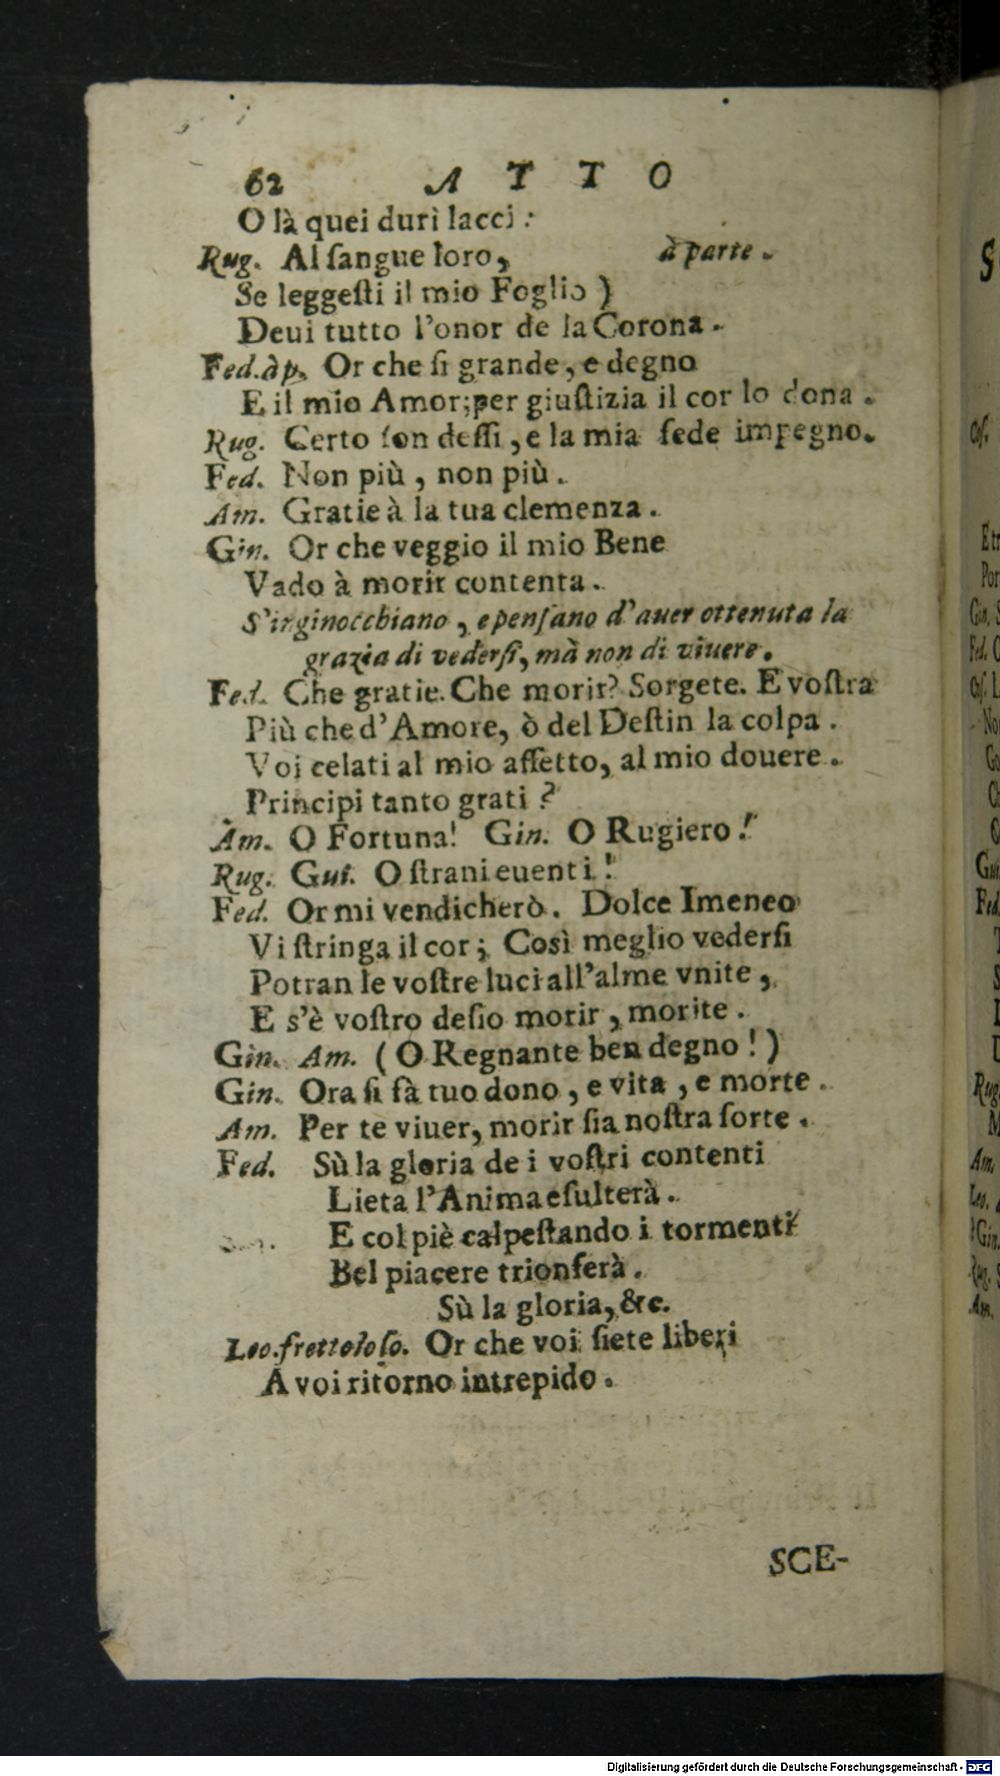 62 ATTO
O là quei duri lacci:
Rug. Al ſangue loro, à parte.
Se leggeſti il mio Foglio)
Deui tutto l'onor de la Corona.
Fed. àp. Or che ſi grande, e degno
E il mio Amor; per giuſtizia il cor lo dona.
Rug. Certo ſon deſſi, e la mia fede impegno.
Fed. Non più, non più.
Am. Gratie à la tua clemenza.
Gin. Or che veggio il mio Bene
Vado à morir contenta.
S'irginocchiano, e penſano d'auer ottenuta la
grazia di vederſi, mà non di viuere.
Fed. Che gratie. Che morir? Sorgete. E voſtra
Più che d'Amore, ò del Deſtin la colpa.
Voi celati al mio affetto, al mio douere.
Principi tanto grati?
Am. O Fortuna! Gin. O Rugiero!
Rug. Gui. O ſtrani euenti!
Fed. Or mi vendicherò. Dolce Imeneo
Vi ſtringa il cor; Così meglio vederſi
Potran le voſtre luci all'alme vnite,
E s'è voſtro deſio morir, morite.
Gin. Am. (O Regnante ben degno!)
Gin. Ora ſi fà tuo dono, e vita, e morte.
Am. Per te viuer, morir ſia noſtra ſorte.
Fed. Sù la gloria de i voſtri contenti
Lieta l'Anima eſulterà.
E col piè calpeſtando i tormenti
Bel piacere trionferà.
Sù la gloria, &c.
Leo. frettoloſo. Or che voi ſiete liberi
A voi ritorno intrepido.
SCE-
Digitalisierung gefördert durch die Deutsche Forschungsgemeinschaft - DFG